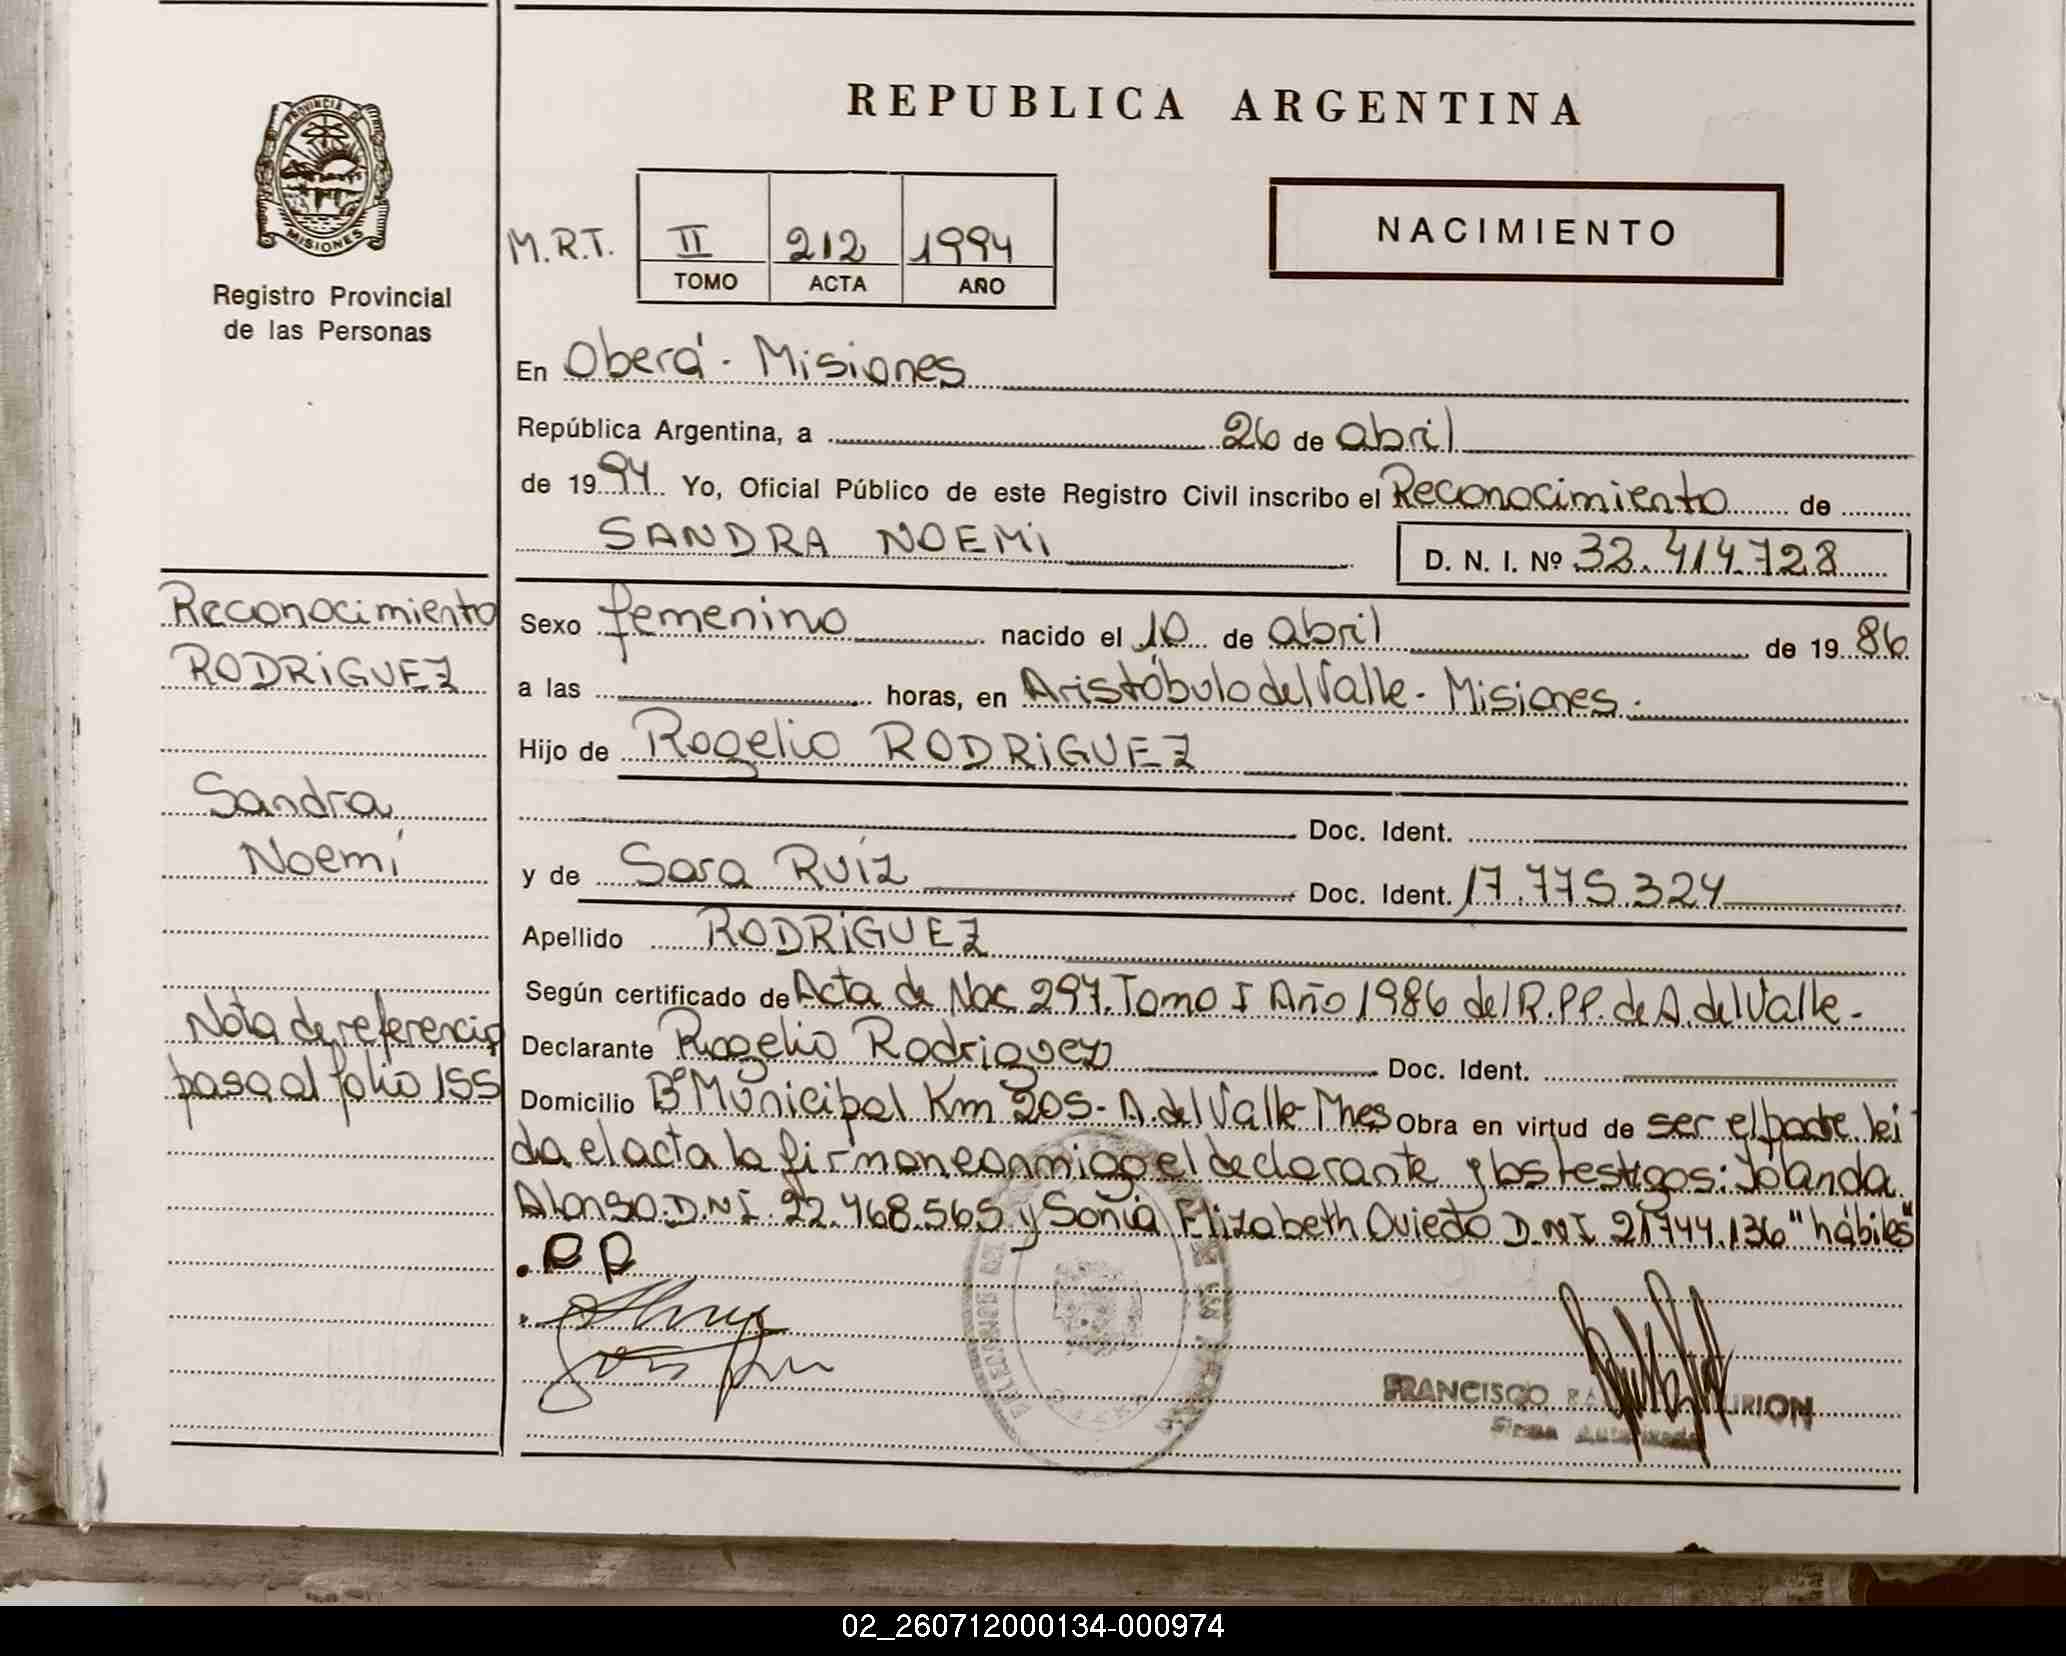 REPUBLICA ARGENTINA
PROVINCIA DE
MISIONES
Registro Provincial
de las Personas
M.R.T.
II 212 1994
TOMO ACTA AÑO
NACIMIENTO
En Oberá - Misiones
República Argentina, a 26 de abril
de 1994 Yo, Oficial Público de este Registro Civil inscribo el Reconocimiento de
SANDRA NOEMi
D. N. I. Nº 32.414.728
Reconocimiento
RODRiGUEZ
Sandra
Noemí
Nota de referencia
pasa al folio 155
Sexo femenino nacido el 10 de abril de 1986
a las horas, en Aristóbulo del Valle - Misiones.
Hijo de Rogelio RODRiGUEZ
Doc. Ident.
y de Sara RUiZ Doc. Ident. 17.775.324
Apellido RODRiGUEZ
Según certificado de Acta de Nac 297. Tomo I Año 1986 del R.P.P. de A. del Valle-
Declarante Rogelio Rodriguez Doc. Ident.
Domicilio Bº Municipal Km 205- A. del Valle- Mnes Obra en virtud de ser el padre. lei
da el acta la firman conmigo el declarante y los testigos: Yolanda
Alonso D.N.I. 22.468.565 y Sonia Elizabeth Oviedo D.N.I 21.744.136 "hábiles"
FRANCISCO IRION
Firma Autorizada
02_260712000134-000974